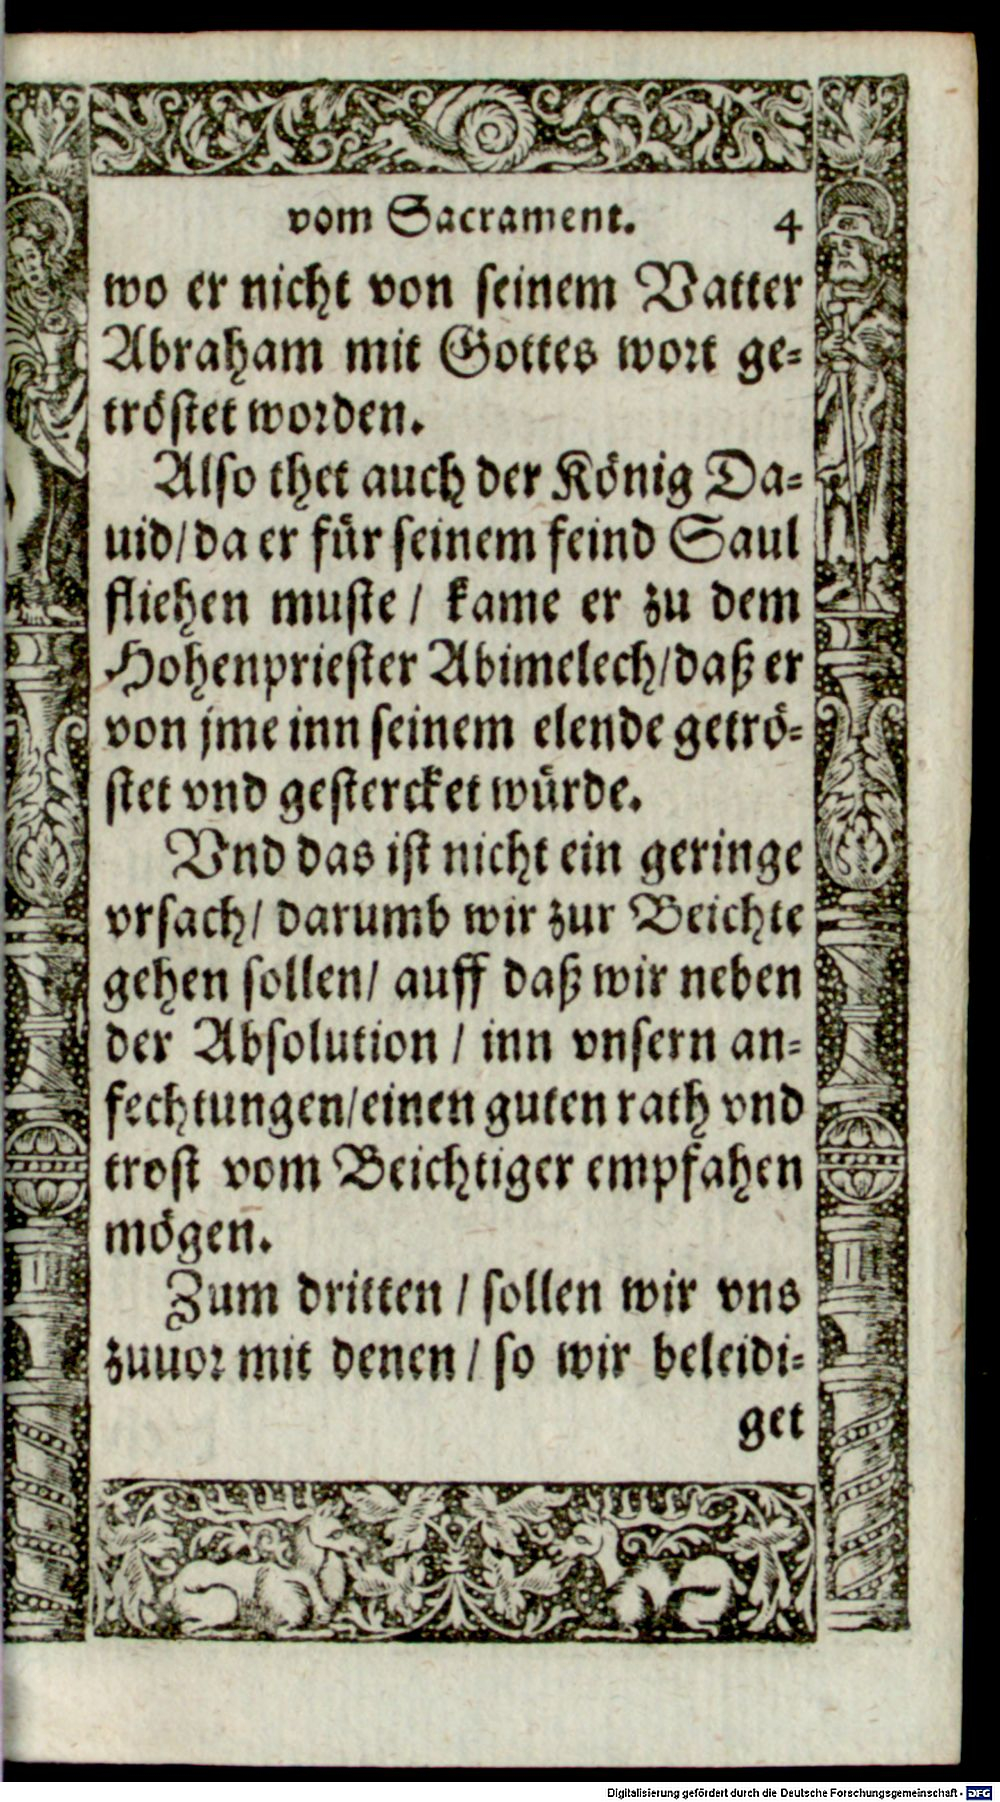 vom Sacrament. 4
wo er nicht von seinem Vatter
Abraham mit Gottes wort ge=
tröstet worden.
Also thet auch der König Da=
uid/ da er für seinem feind Saul
fliehen muste / kame er zu dem
Hohenpriester Abimelech/ daß er
von jme inn seinem elende getrö=
stet vnd gestercket würde.
Vnd das ist nicht ein geringe
vrsach/ darumb wir zur Beichte
gehen sollen/ auff daß wir neben
der Absolution / inn vnsern an=
fechtungen/ einen guten rath vnd
trost vom Beichtiger empfahen
mögen.
Zum dritten / sollen wir vns
zuuor mit denen / so wir beleidi=
get
Digitalisierung gefördert durch die Deutsche Forschungsgemeinschaft - DFG